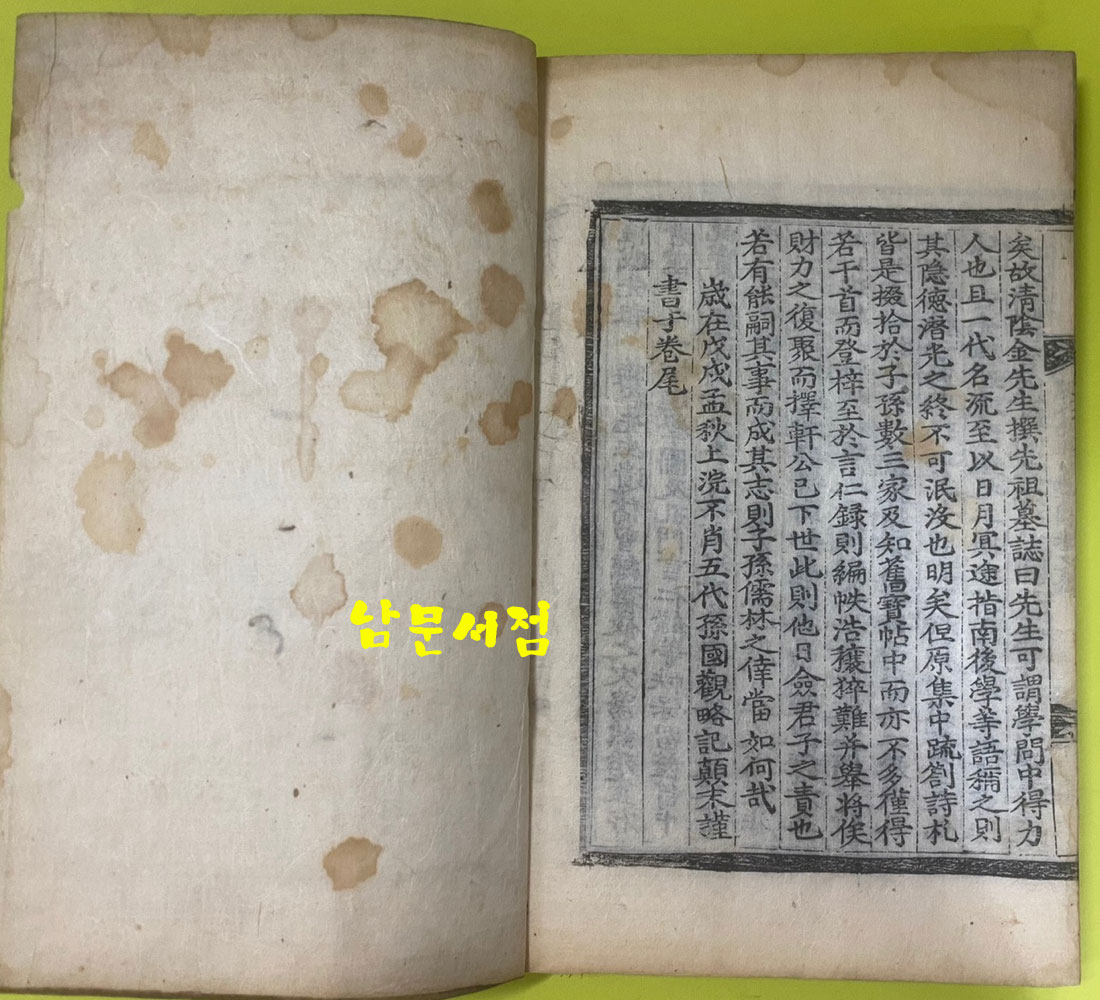 矣故清陰金先生撰先祖墓誌曰先生可謂學問中得力
人也且一代名流至以日月冥途指南後學等語稱之則
其隐德潛光之終不可泯沒也明矣但原集中疏劄詩札
皆是掇拾於子孫數三家及知舊寶帖中而亦不多僅得
若干首而登梓至於言仁録則編帙浩穰猝難并舉將俟
財力之復聚而擇軒公已下世此則他日僉君子之責也
若有能嗣其事而成其志則子孫儒林之倖當如何哉
歲在戊戌孟秋上浣不肖五代孫國觀略記顛末謹
書于卷尾
남문서점
3